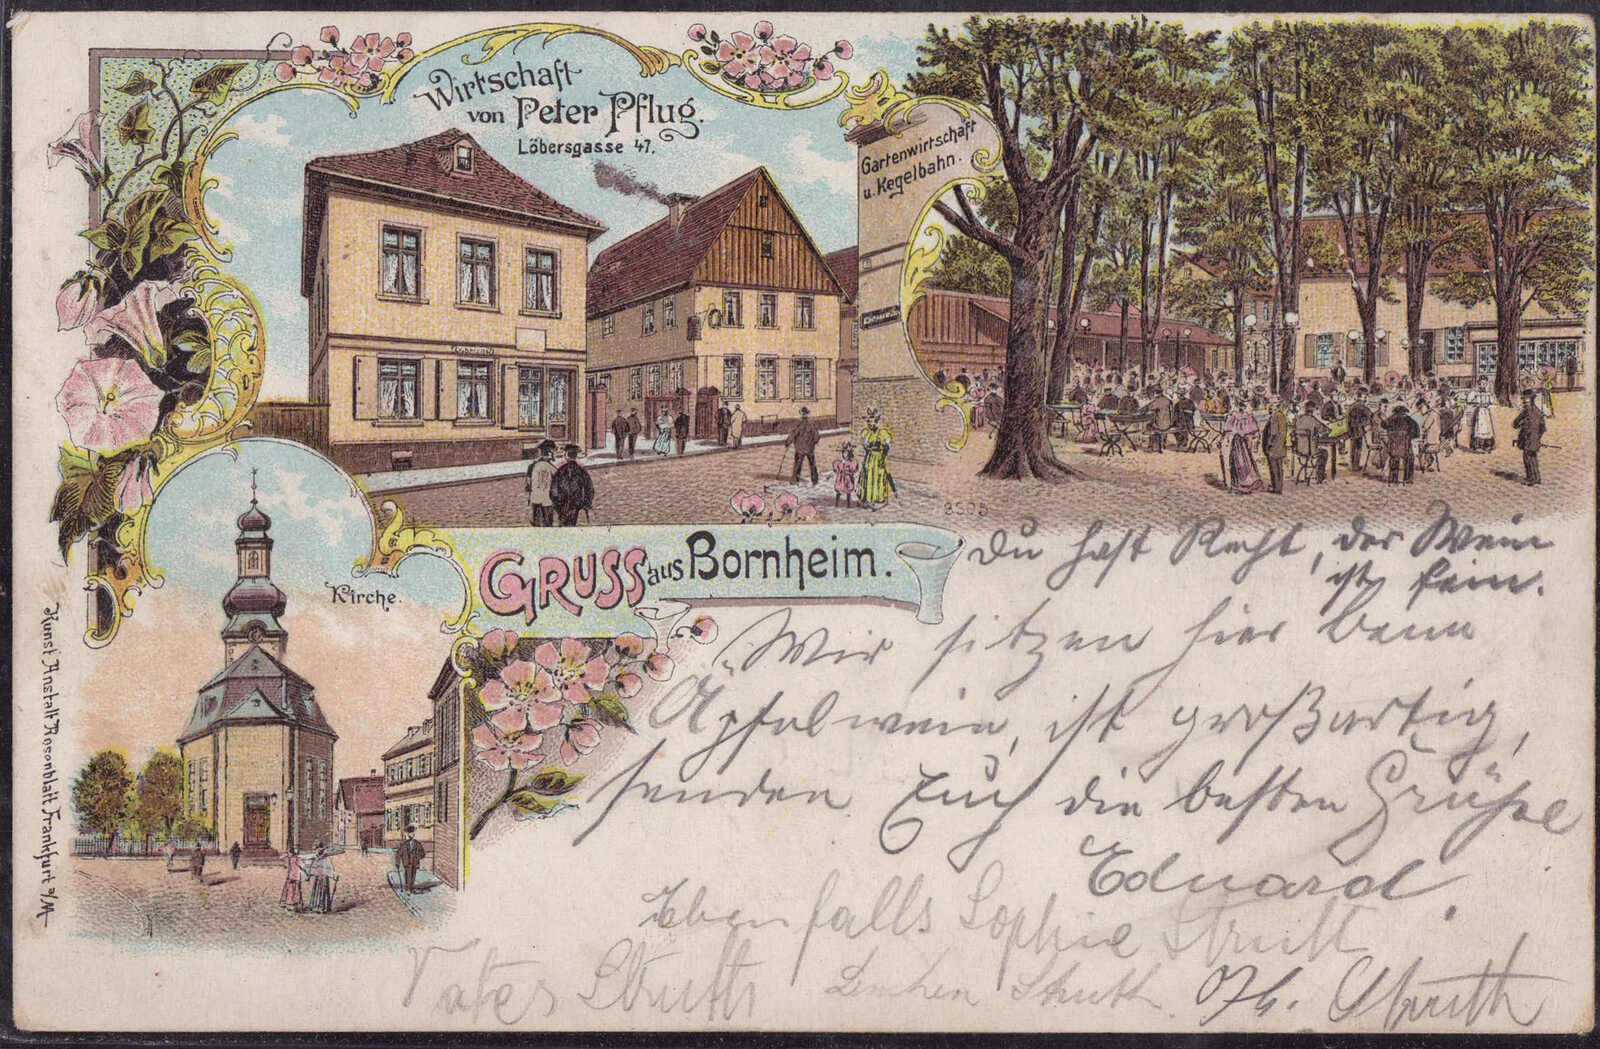 Wirtschaft
von Peter Pflug.
Löbersgasse 47.
Gartenwirtschaft
u. Kegelbahn.
8595
Kirche.
GRUSS aus Bornheim.
Kunst Anstalt Rosenblatt, Frankfurt a/M
Du hast Recht, der Wein
ist fein.
Wir sitzen hier beim
Äpfelwein, ist großartig,
senden Euch die besten Grüße
Eduard.
Ebenfalls Sophie Strutt
Vater Struth
Lenchen Struth
Struth